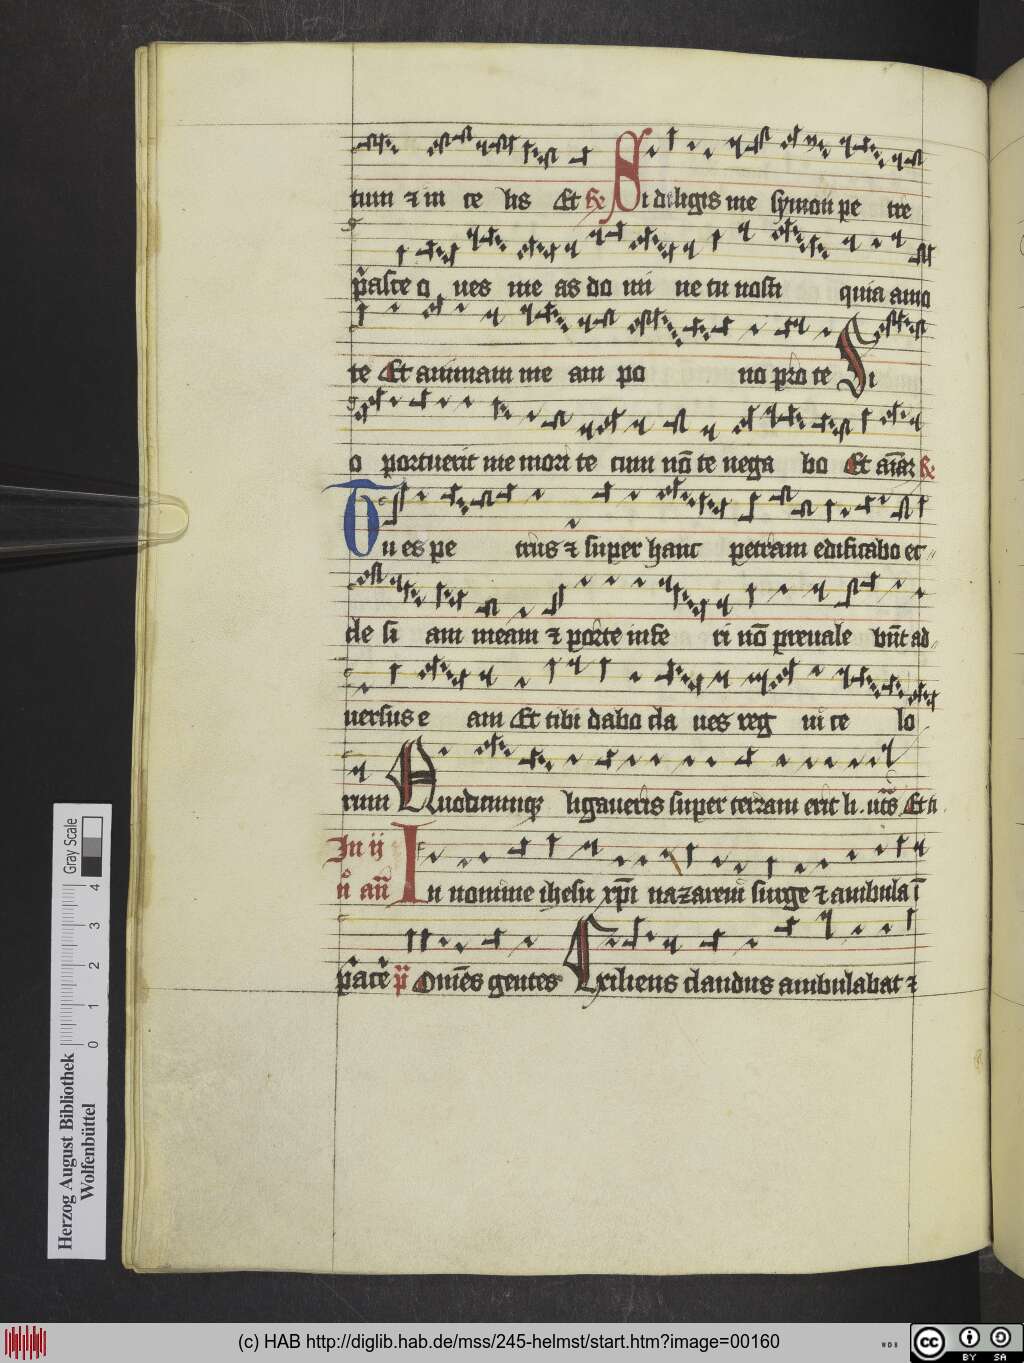 tum ⁊ in ce lis Et he Si diligis me symon pe tre
pasce o ues me as do mi ne tu nosti quia amo
te Et animam me am po no pro te Si
o portuerit me mori te cum nō te nega bo Et aīaꝫ
Tu es pe trus ⁊ super hanc petram edificabo ec
cle si am meam ⁊ porte infe ri nō preuale būt ad
uersus e am Et tibi dabo cla ues reg ni ce lo
rum Quodcumqꝫ ligaueris super terram erit li. Et ti
In ij In nomine ihesu xp̄i nazareni surge ⁊ ambula ī
n̊ an̄
pace p̄ Omēs gentes Exiliens claudus ambulabat ⁊
Gray Scale
0 1 2 3 4
Herzog August Bibliothek
Wolfenbüttel
(c) HAB http://diglib.hab.de/mss/245-helmst/start.htm?image=00160
WDB
cc BY SA